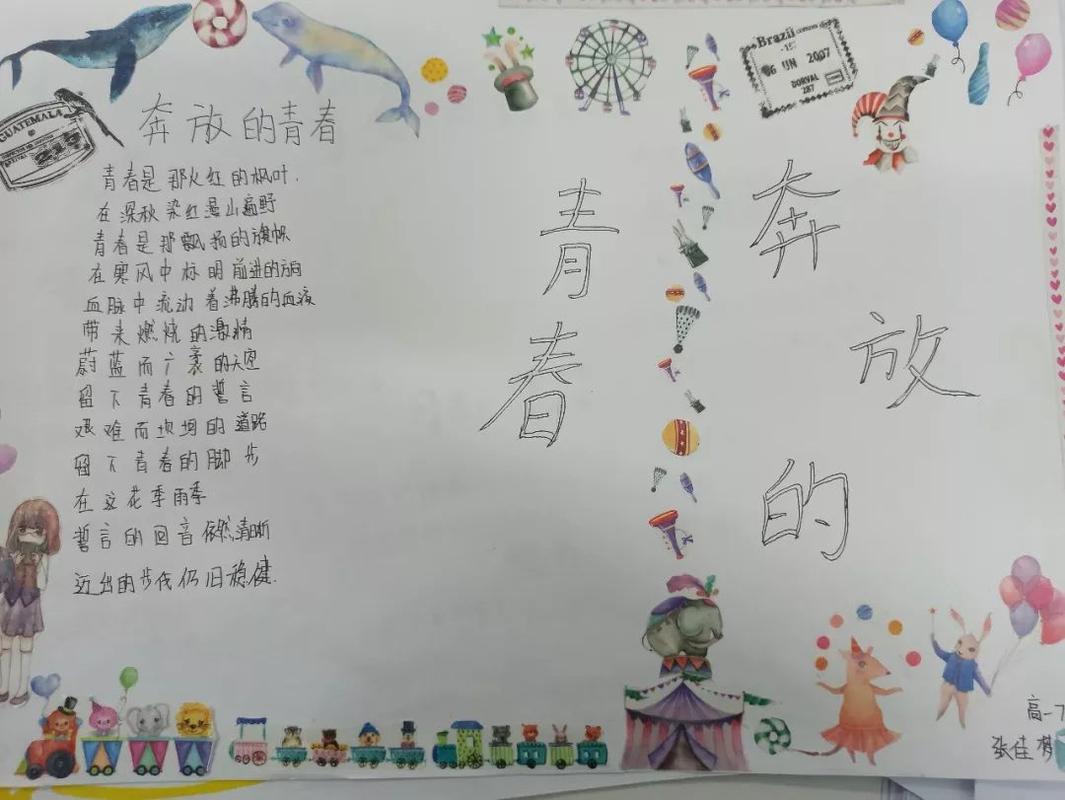 奔放的青春
青春是那火红的枫叶.
在深秋染红漫山遍野
青春是那飘扬的旗帜
在寒风中标明前进的方向
血脉中流动着沸腾的血液
带来燃烧的激情
蔚蓝而广袤的天空
留下青春的誓言
艰难而坎坷的道路
留下青春的脚步
在这花季雨季
誓言的回音依然清晰
迈出的步伐仍旧稳健.
奔
放
的
青
春
GUATEMALA
219
Brazil
06 JUN 2007
DORVAL
287
高一7
张佳梦